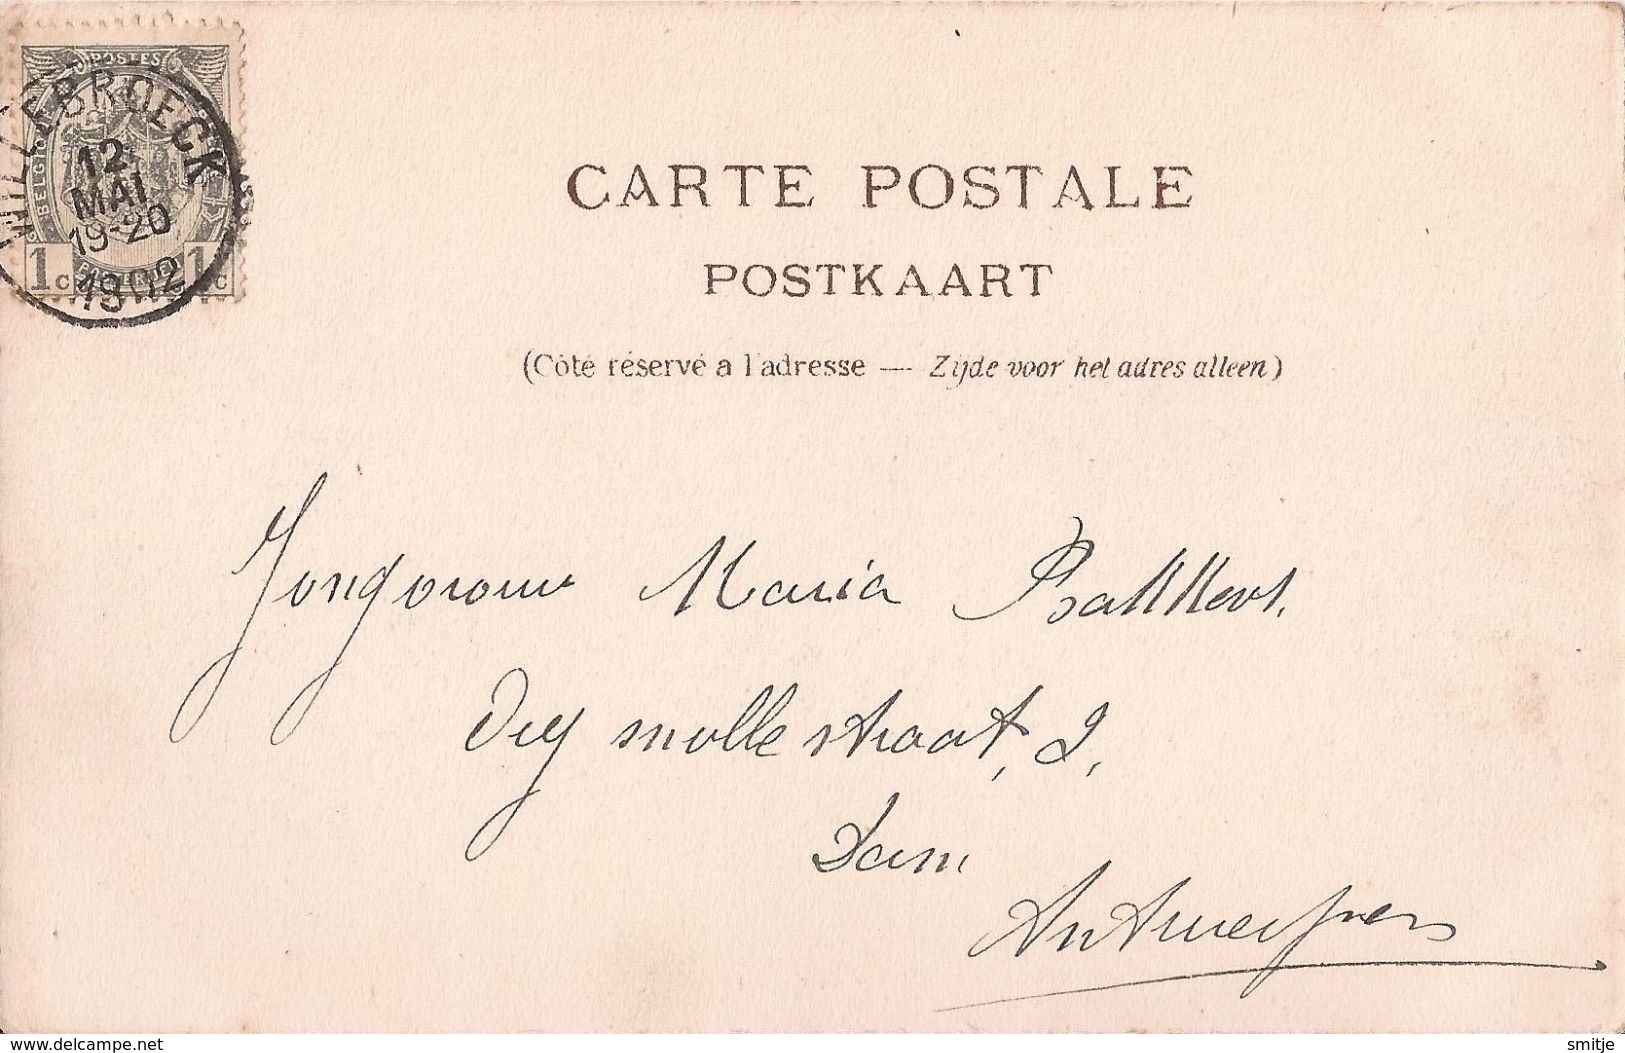 POSTES
BELGIQUE
WILLEBROECK
12
MAI
19-20
1902
1 c 1 c
CARTE POSTALE
POSTKAART
(Côté réservé a l'adresse — Zijde voor het adres alleen)
Jongvrouw Maria
straat, 2,
Dam
Antwerpen
www.delcampe.net
smitje